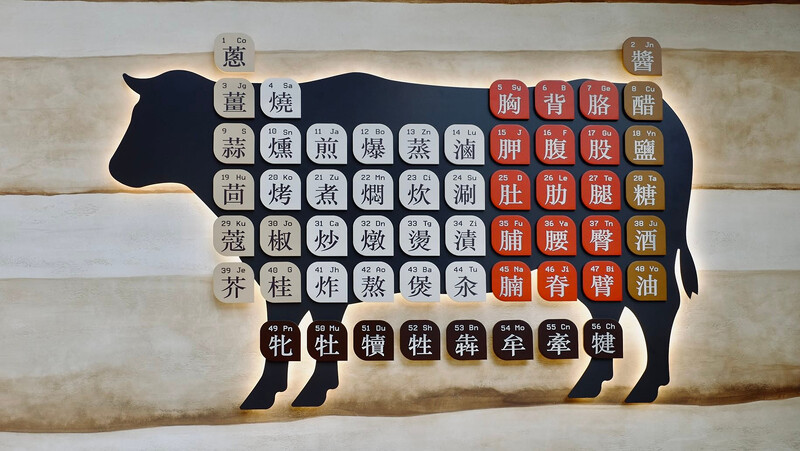 1 Co 2 Jn
蔥 醬
3 Jg 4 Sa 5 Sy 6 B 7 Ge 8 Cu
薑 燒 胸 背 胳 醋
9 S 10 Sn 11 Ja 12 Bo 13 Zn 14 Lu 15 J 16 F 17 Gu 18 Yn
蒜 燻 煎 爆 蒸 滷 胛 腹 股 鹽
19 Hu 20 Ko 21 Zu 22 Mn 23 Ci 24 Su 25 D 26 Le 27 Te 28 Ta
茴 烤 煮 燜 炊 涮 肚 肋 腿 糖
29 Ku 30 Jo 31 Ca 32 Dn 33 Tg 34 Z 35 Fu 36 Ya 37 Tn 38 Ju
蔻 椒 炒 燉 燙 漬 脯 腰 臀 酒
39 Je 40 G 41 Jh 42 Ao 43 Ba 44 Tu 45 Na 46 Ji 47 Bi 48 Yo
芥 桂 炸 熬 煲 汆 腩 脊 臂 油
49 Pn 50 Mu 51 Du 52 Sh 53 Bn 54 Mo 55 Cn 56 Ch
牝 牡 犢 牲 犇 牟 牽 犍